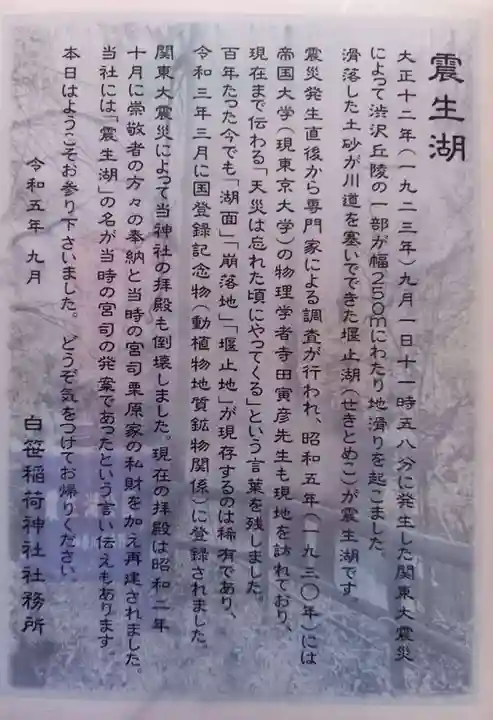 震生湖
大正十二年(一九二三年)九月一日十一時五八分に発生した関東大震災
によって渋沢丘陵の一部が幅250mにわたり地滑りを起こました
滑落した土砂が川道を塞いでできた堰止湖(せきとめこ)が震生湖です
震災発生直後から専門家による調査が行われ、昭和五年(一九三〇年)には
帝国大学(現東京大学)の物理学者寺田寅彦先生も現地を訪れており、
現在まで伝わる「天災は忘れた頃にやってくる」という言葉を残しました。
百年たった今でも「湖面」「崩落地」「堰止地」が現存するのは稀有であり、
令和三年三月に国登録記念物(動植物地質鉱物関係)に登録されました。
関東大震災によって当神社の拝殿も倒壊しました。現在の拝殿は昭和二年
十月に崇敬者の方々の奉納と当時の宮司栗原家の私財を加え再建されました。
当社には「震生湖」の名が当時の宮司の発案であったという言い伝えもあります。
本日はようこそお参り下さいました。どうぞ気をつけてお帰りください。
令和五年 九月
白笹稲荷神社社務所